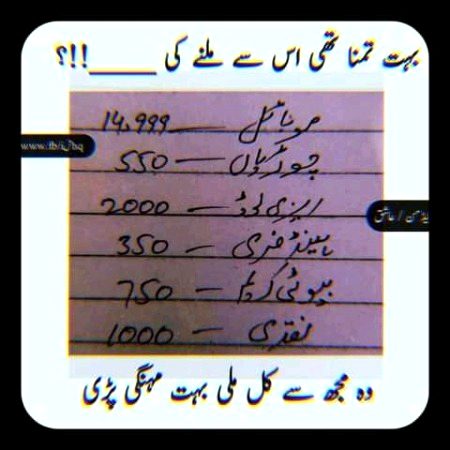 بہت تمنا تھی اس سے ملنے کی ____!!؟
موبائل — 14,999
چوڑیاں — 550
ایزی لوڈ — 2000
ہینڈ فری — 350
بیوٹی کریم — 750
نقدی — 1000
وہ مجھ سے کل ملی بہت مہنگی پڑی